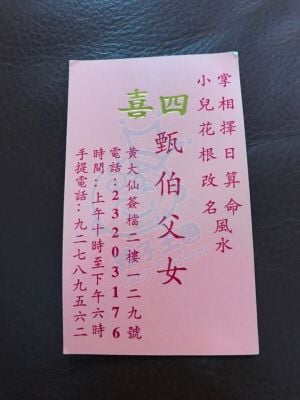 掌相擇日算命風水
小兒花根改名
四喜
甄伯父女
黃大仙簽檔二樓一二九號
電話:23203176
時間:上午十時至下午六時
手提電話:九二七八九五六二